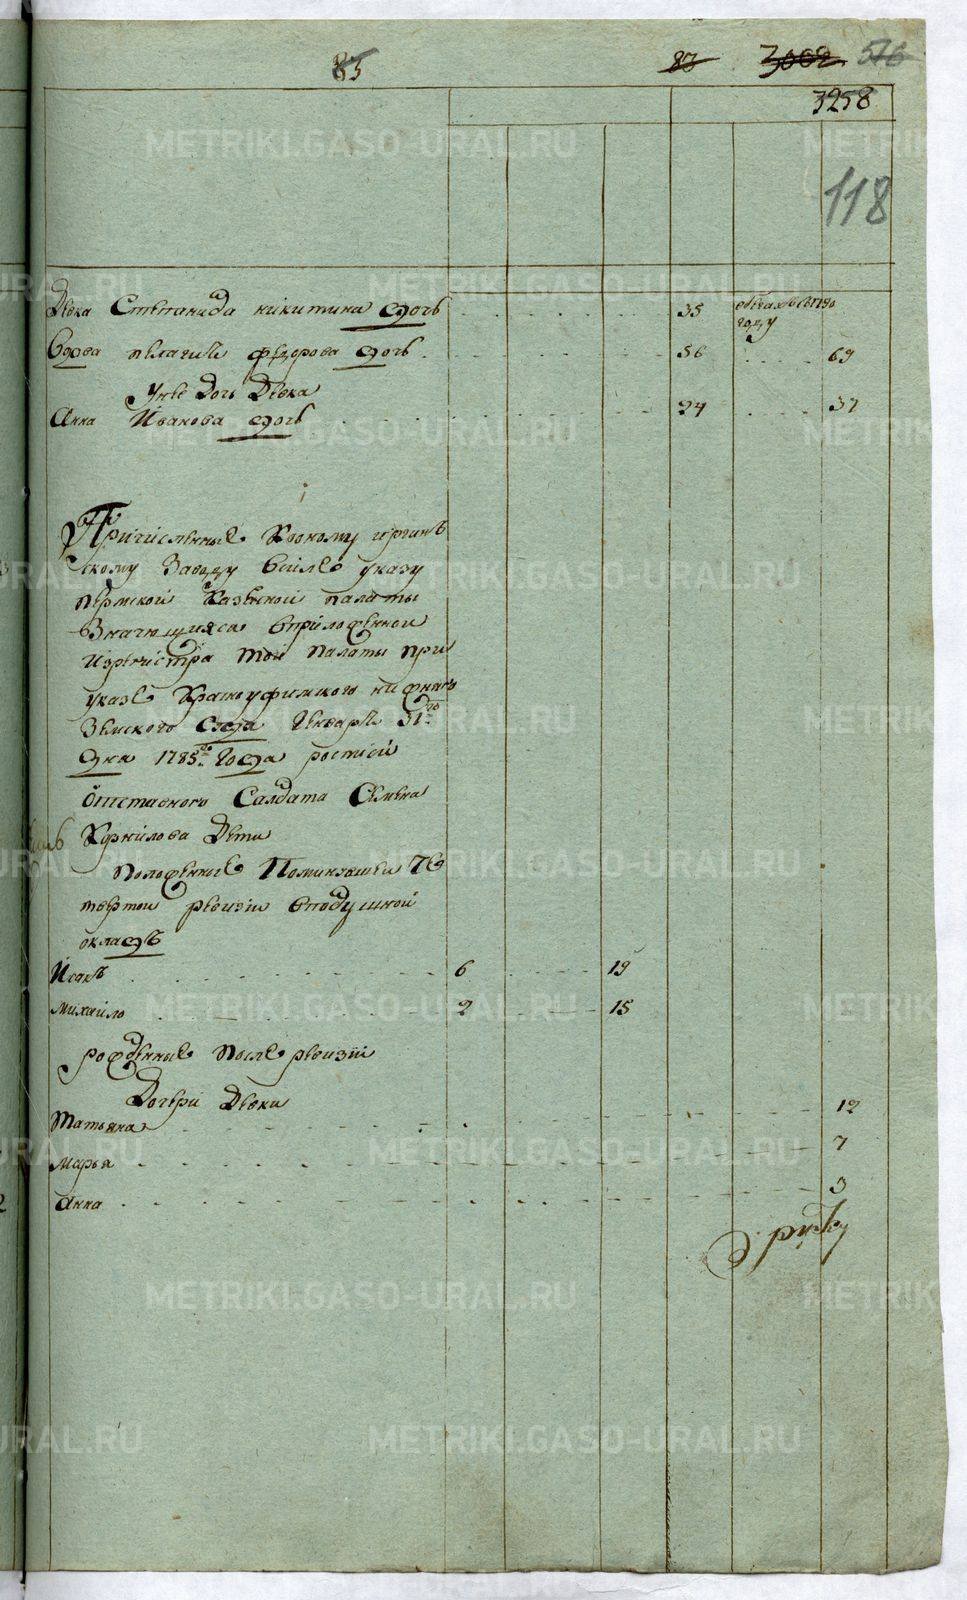 85 83 3062 576
3258
118
Девка Степанида никитина дочь 35 в 1790
году
Вдова пелагия федорова дочь 56 69
у нее дочь девка
Анна Иванова дочь 24 37
Причисленныя к оному иргин
скому заводу в силе указу
пермской казенной палаты
значющияся в приложенной
из регистра той палаты при
указе Красноуфимского нижняго
земского суда генваря 31го
дня 1785го года
отставного салдата Семена
Корнилова дети
положенные по минувшей че
твертой ревизии в подушной
оклад
Исакъ 6 19
михайло 2 15
рожденные после ревизии
дочери девки
татьяна 12
марья 7
анна 3
METRIKI.GASO-URAL.RU